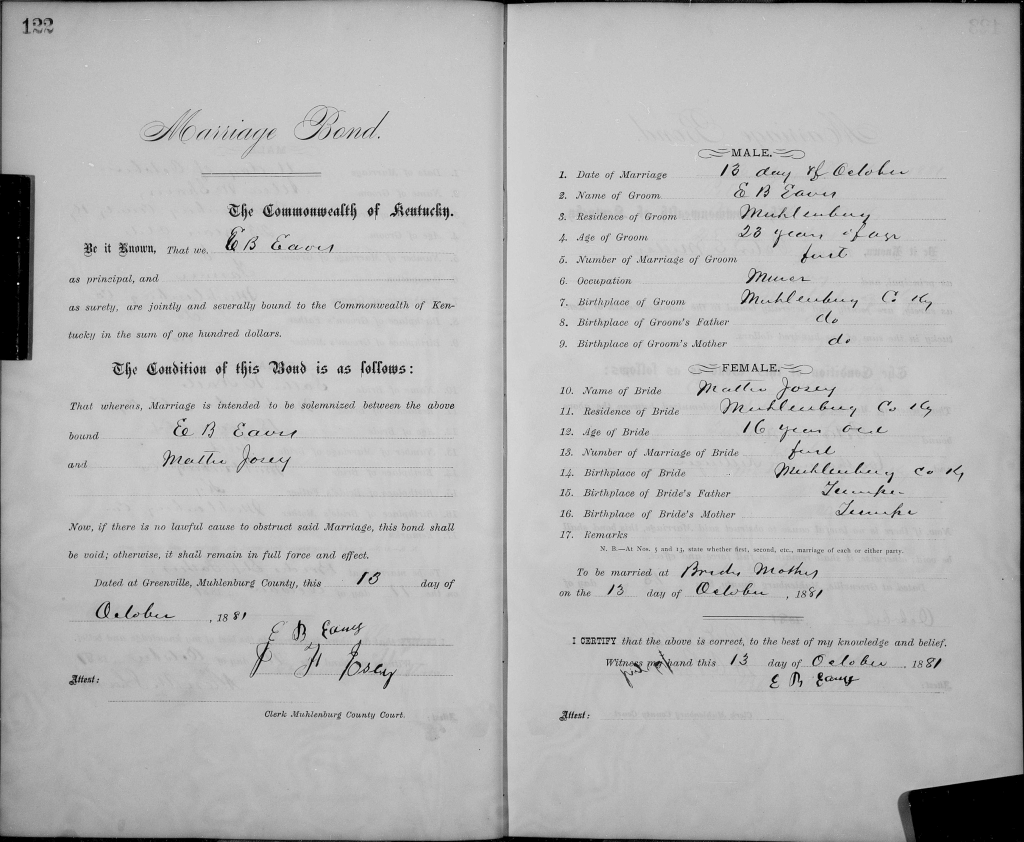 122
Marriage Bond.
The Commonwealth of Kentucky.
Be it Known, That we, E B Eaves
as principal, and
as surety, are jointly and severally bound to the Commonwealth of Ken-
tucky in the sum of one hundred dollars.
The Condition of this Bond is as follows:
That whereas, Marriage is intended to be solemnized between the above
bound E B Eaves
and Mattie Josey
Now, if there is no lawful cause to obstruct said Marriage, this bond shall
be void; otherwise, it shall remain in full force and effect.
Dated at Greenville, Muhlenburg County, this 13 day of
October, 1881
E B Eaves
J H Josey
Attest:
Clerk Muhlenburg County Court.
MALE.
1. Date of Marriage 13 day of October
2. Name of Groom E B Eaves
3. Residence of Groom Muhlenburg
4. Age of Groom 23 years of age
5. Number of Marriage of Groom first
6. Occupation Miner
7. Birthplace of Groom Muhlenburg Co Ky
8. Birthplace of Groom's Father do
9. Birthplace of Groom's Mother do
FEMALE.
10. Name of Bride Mattie Josey
11. Residence of Bride Muhlenburg Co Ky
12. Age of Bride 16 years old
13. Number of Marriage of Bride first
14. Birthplace of Bride Muhlenburg Co Ky
15. Birthplace of Bride's Father
16. Birthplace of Bride's Mother
17. Remarks
N. B.—At Nos. 5 and 13, state whether first, second, etc., marriage of each or either party.
To be married at Brides Mothers
on the 13 day of October, 1881
I CERTIFY that the above is correct, to the best of my knowledge and belief.
Witness my hand this 13 day of October, 1881
E B Eaves
Attest: